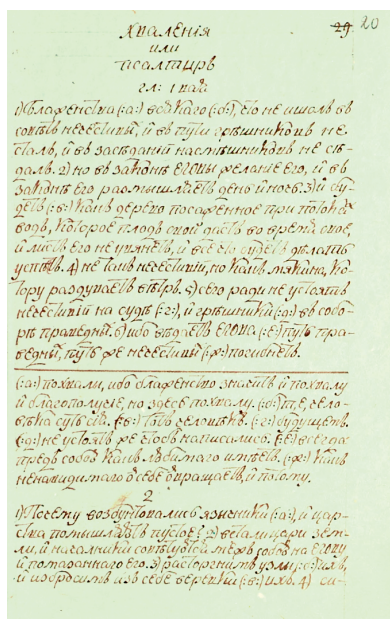 29 20
Хваленія
или
псалтырь
гл: 1 пал:
1) Блаженства(:а:) всякаго(:б:), кто не ишолъ въ
совѣтъ нечестивы, и въ пути грѣшниковъ не
сталъ, и въ засѣданіи насмѣшниковъ не сѣ-
далъ. 2) но въ законѣ Еговы желаніе его, и въ
законѣ его размышляетъ день и ночь. 3) и бу-
детъ(:в:) какъ дерево посаженное при потокѣ
водъ, которое плодъ свой даетъ во время свое,
и листъ его не увянетъ, и все что будетъ дѣлать
успѣтъ. 4) не такъ нечестивіи, но какъ мякина, ко-
тору раздуваетъ вѣтръ. 5) сего ради не устоятъ
нечестивіи на судѣ(:г:), и грѣшники(:д:) въ собо-
рѣ праведны. 6) ибо вѣдаетъ Егова(:е:) путь пра-
ведны, путь же нечестивы(:ж:) погибнетъ.
(:а:) похвали, ибо блаженство значитъ и похвалу
и благополучіе, но здесь похвалу. (:б:) т, е, чело-
вѣка (:в:) тотъ человѣкъ. (:г:) будущемъ.
(:д:) не устоятъ же какъ написалось. (:е:) всегда
предъ собою какъ любимаго имѣетъ. (:ж:) какъ
ненавидимаго ѿ себе ѿвращаетъ, и потому.
2
1) Посему возбунтовались язычники(:а:), и цар-
ства помышляютъ пустое? 2) встали цари зем-
ли, и началники совѣтуютъ межъ собою на Егову
и помазаннаго его. 3) расторгнимъ узлы(:б:) ихъ,
и изброситъ изъ себе веревки(:в:) ихъ. 4) си-